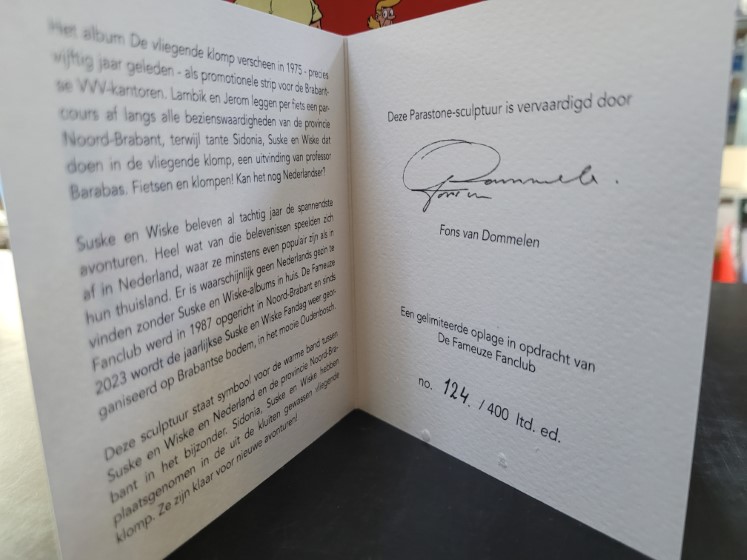 Het album De vliegende klomp verscheen in 1975 - precies
vijftig jaar geleden - als promotionele strip voor de Brabant-
se VVV-kantoren. Lambik en Jerom leggen per fiets een par-
cours af langs alle bezienswaardigheden van de provincie
Noord-Brabant, terwijl tante Sidonia, Suske en Wiske dat
doen in de vliegende klomp, een uitvinding van professor
Barabas. Fietsen en klompen! Kan het nog Nederlandser?
Suske en Wiske beleven al tachtig jaar de spannendste
avonturen. Heel wat van die belevenissen speelden zich
af in Nederland, waar ze minstens even populair zijn als in
hun thuisland. Er is waarschijnlijk geen Nederlands gezin te
vinden zonder Suske en Wiske-albums in huis. De Fameuze
Fanclub werd in 1987 opgericht in Noord-Brabant en sinds
2023 wordt de jaarlijkse Suske en Wiske Fandag weer geor-
ganiseerd op Brabantse bodem, in het mooie Oudenbosch.
Deze sculptuur staat symbool voor de warme band tussen
Suske en Wiske en Nederland en de provincie Noord-Bra-
bant in het bijzonder. Sidonia, Suske en Wiske hebben
plaatsgenomen in de uit de kluiten gewassen vliegende
klomp. Ze zijn klaar voor nieuwe avonturen!
Deze Parastone-sculptuur is vervaardigd door
Fons van Dommelen
Een gelimiteerde oplage in opdracht van
De Fameuze Fanclub
no. 124. / 400 ltd. ed.